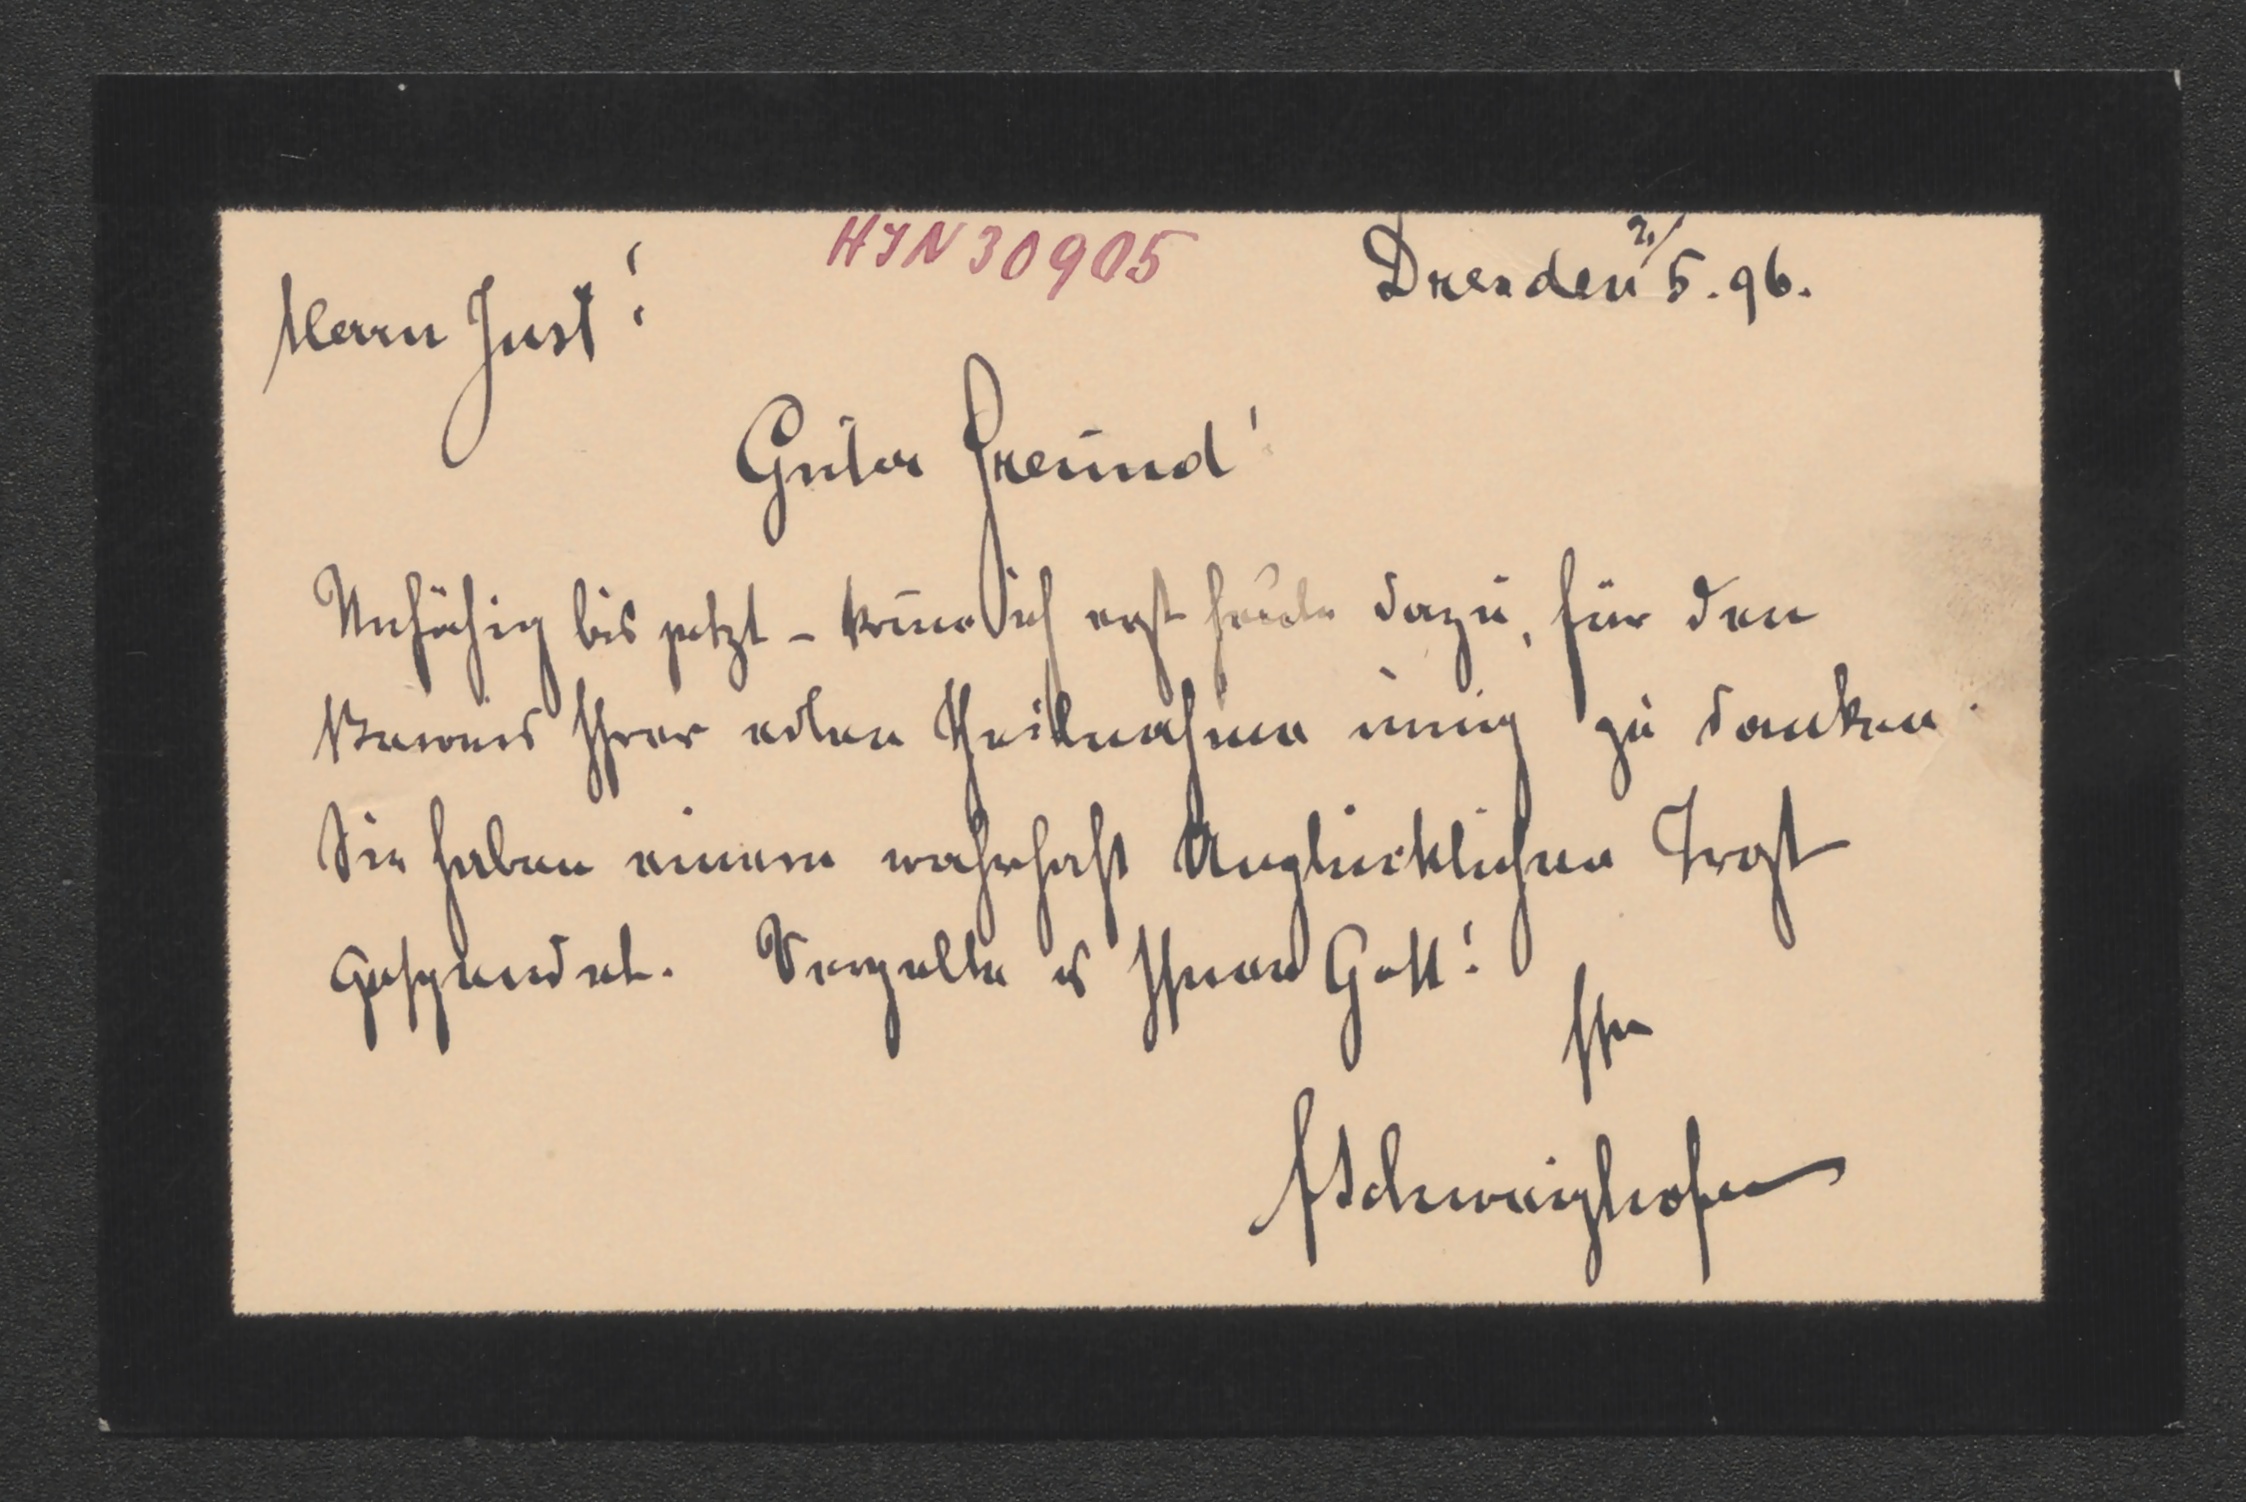 HIN 30905
Dresden 2./5. 96.
Herrn Just!
Guter Freund!
Unfähig bis jetzt – komme ich erst heute dazu, für den
Beweis Ihrer edlen Theilnahme innig zu danken.
Sie haben einem wahrhaft Unglücklichen Trost
gespendet. Vergelte es Ihnen Gott!
Ihr
Schweighofer